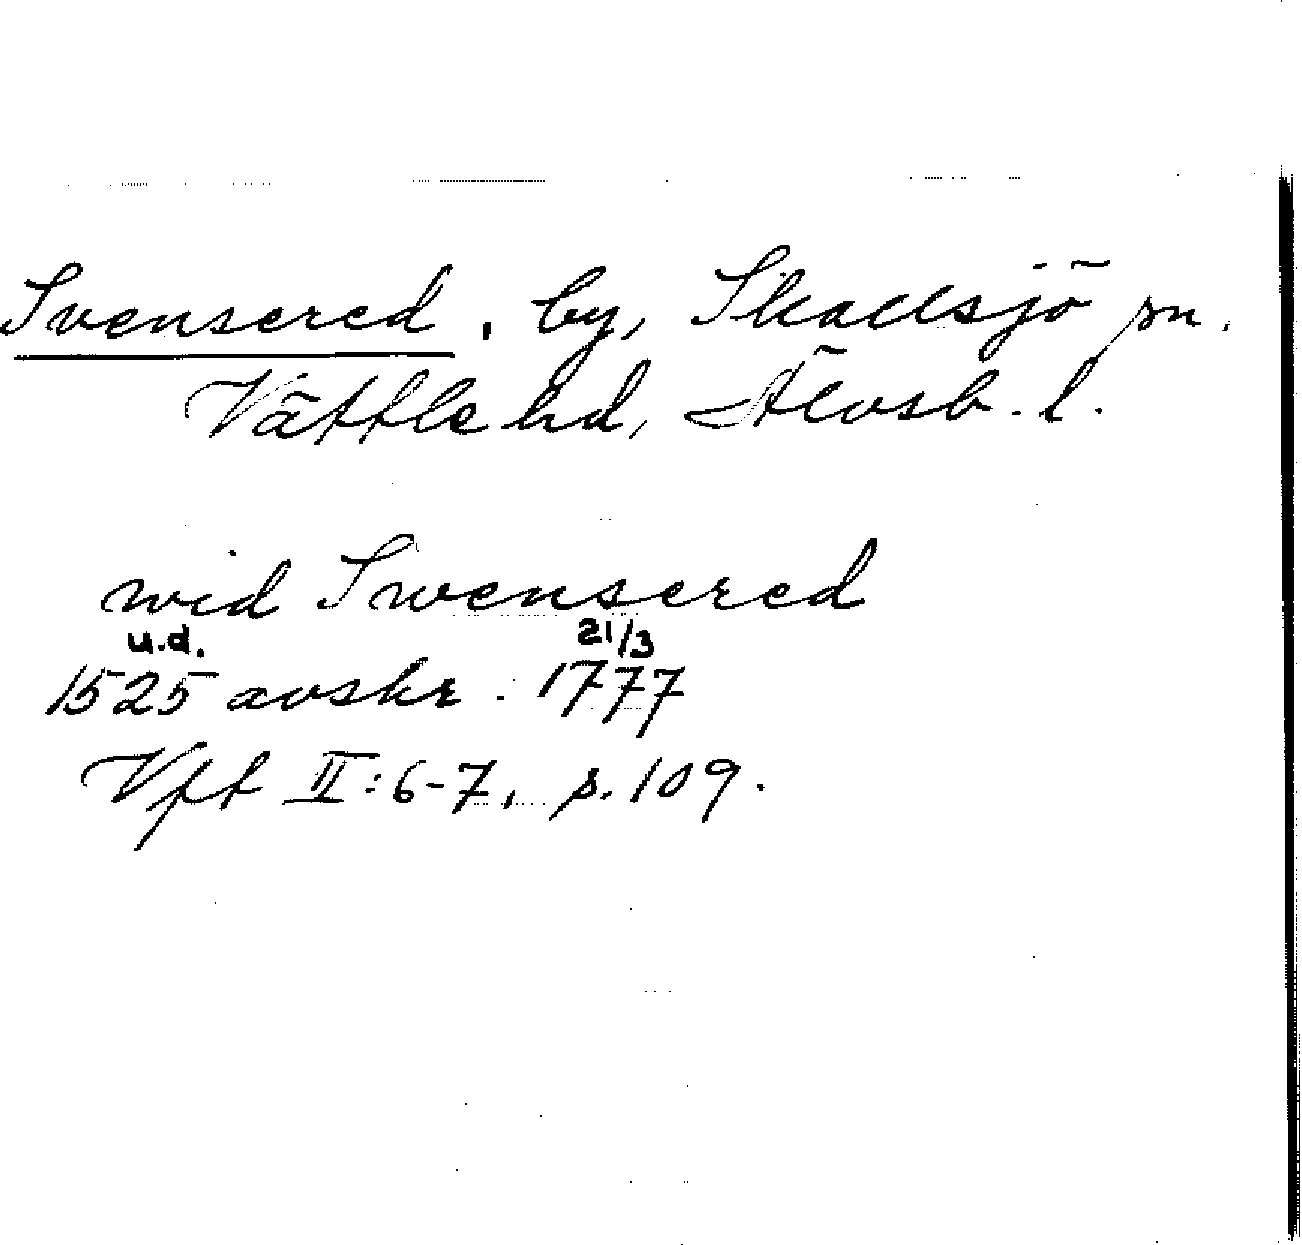 Svensered, by, Skallsjö sn.
Vättle hd, Älvsb. l.
wid Swensered
u.d. 21/3
1525 avskr. 1777
Vfft II:6-7, s. 109.